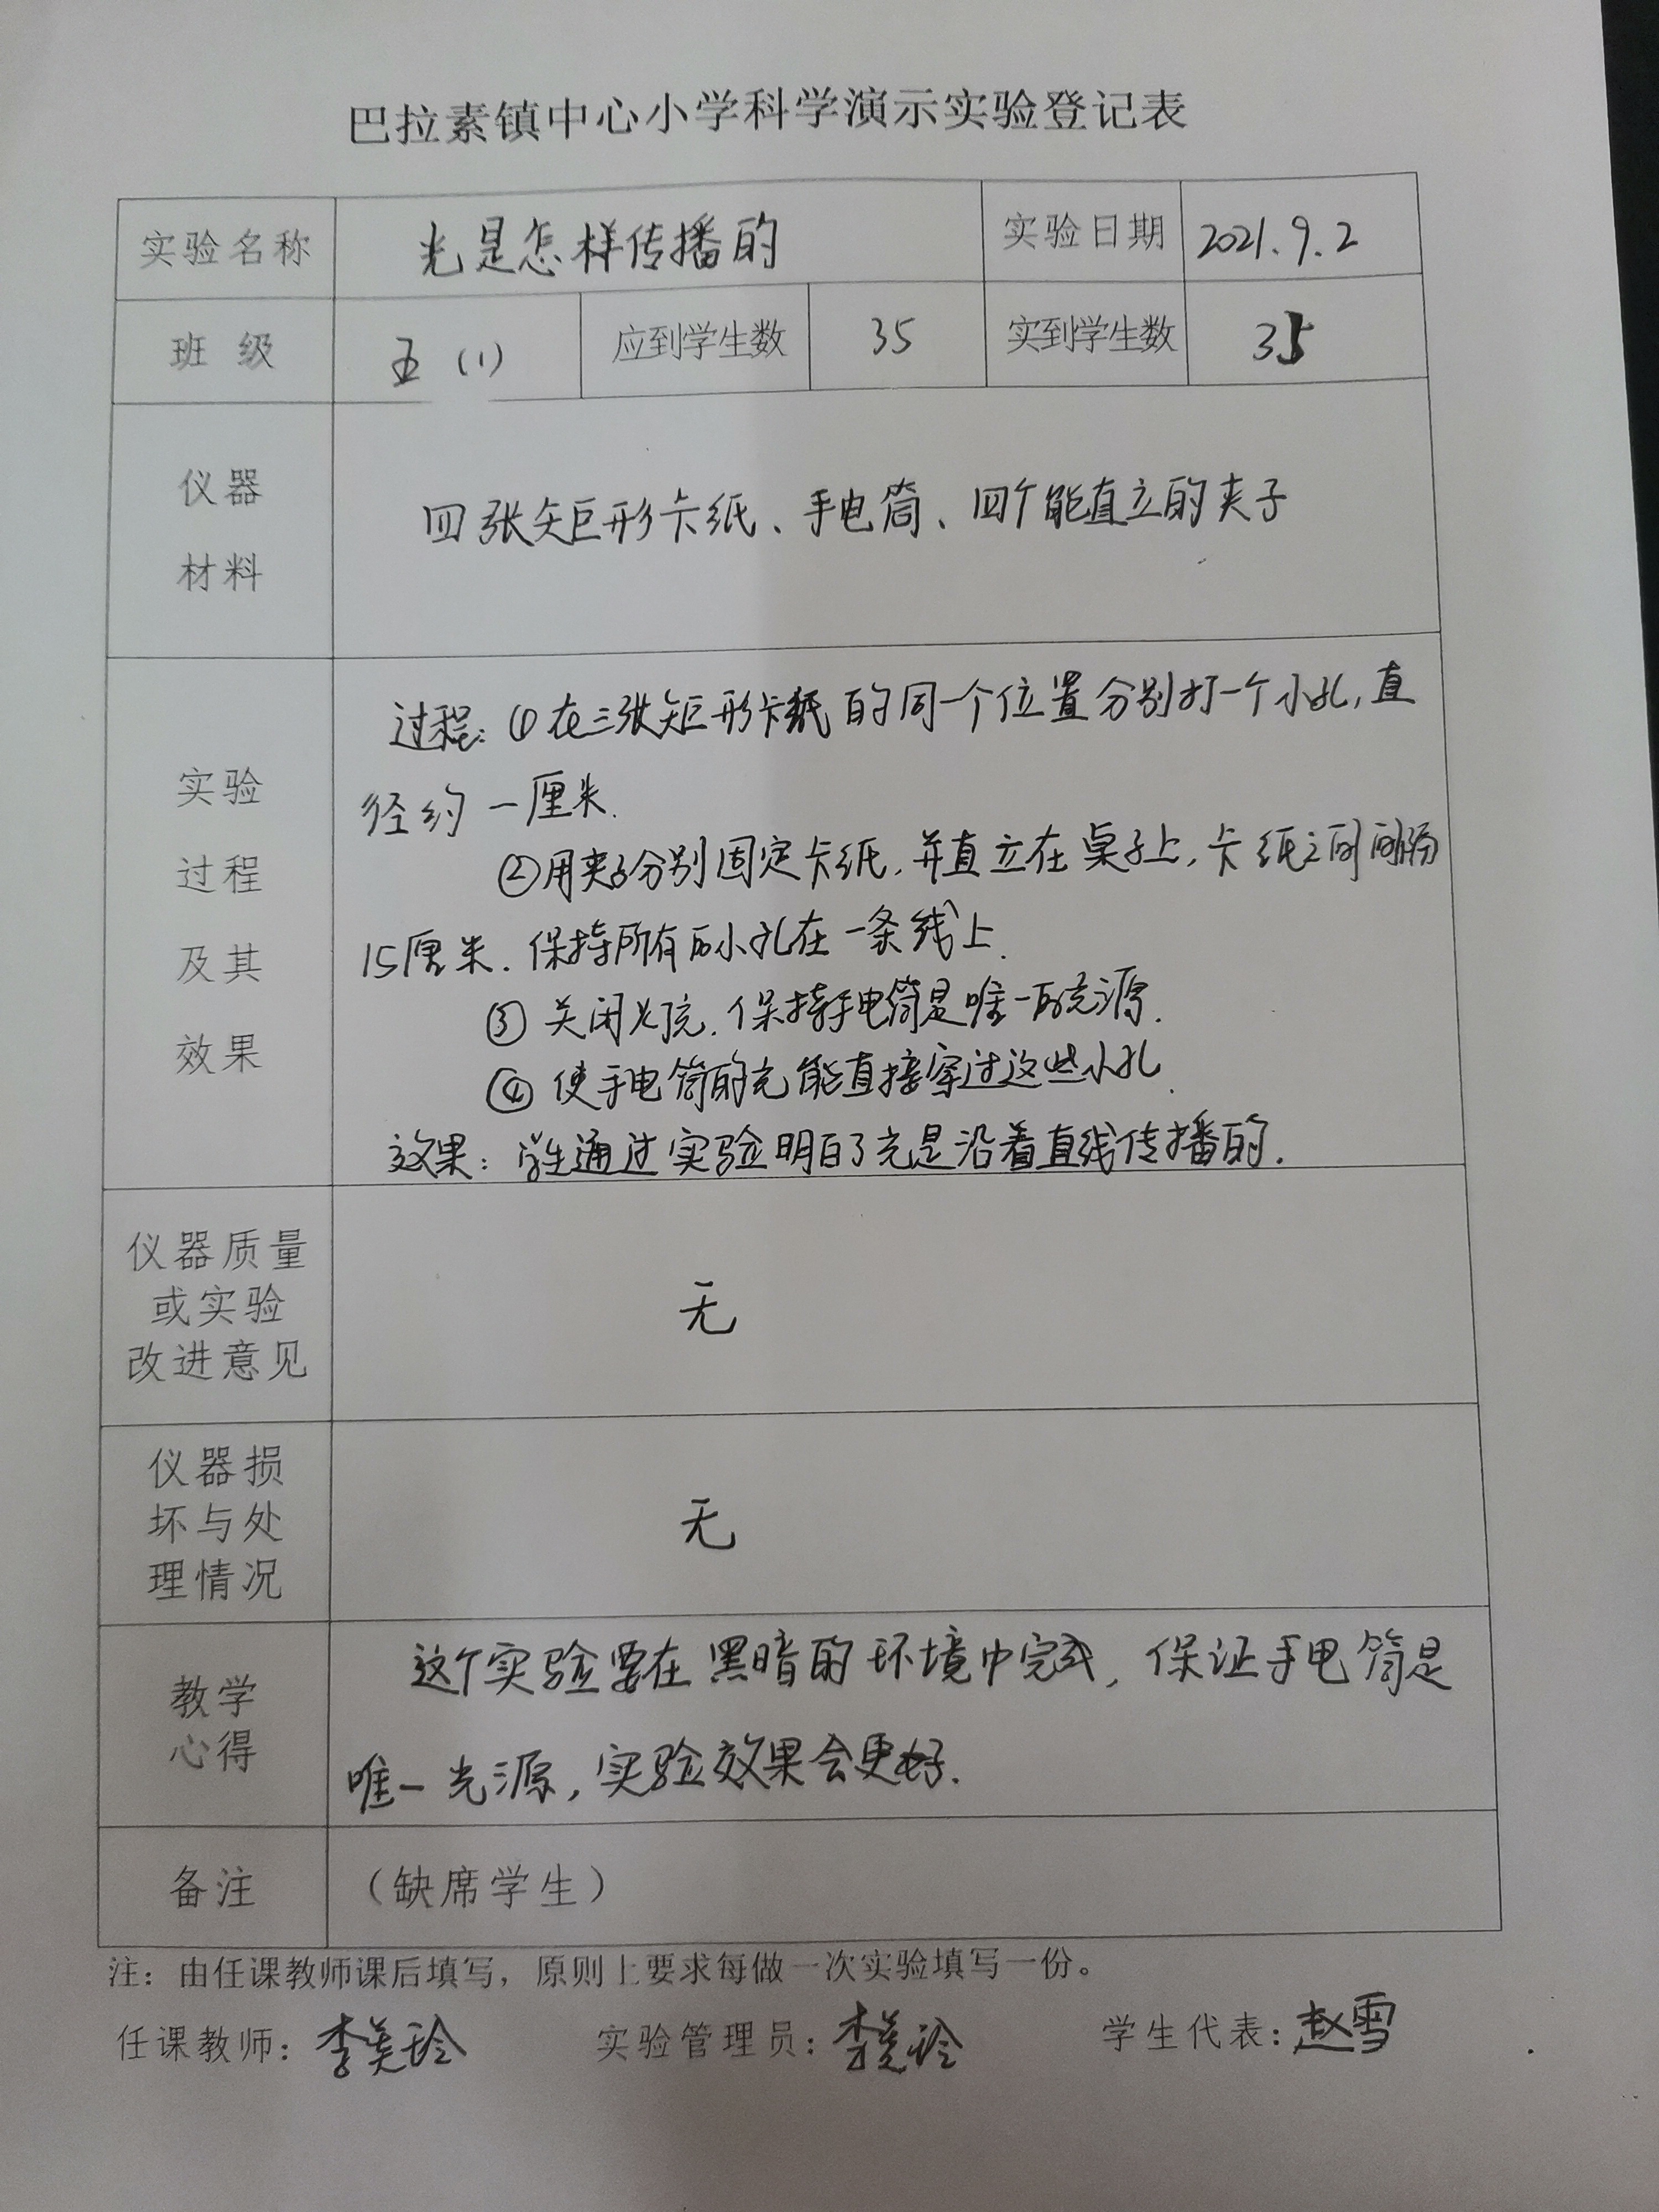 巴拉素镇中心小学科学演示实验登记表
实验名称 光是怎样传播的 实验日期 2021.9.2
班 级 五(1) 应到学生数 35 实到学生数 35
仪器
材料
四张矩形卡纸、手电筒、四个能直立的夹子
实验
过程
及其
效果
过程:①在三张矩形卡纸的同一个位置分别打一个小孔,直
径约一厘米.
②用夹子分别固定卡纸,并直立在桌子上,卡纸之间间隔
15厘米.保持所有的小孔在一条线上.
③关闭光源.保持手电筒是唯一的光源.
④使手电筒的光能直接穿过这些小孔.
效果:学生通过实验明白了光是沿着直线传播的.
仪器质量
或实验
改进意见
无
仪器损
坏与处
理情况
无
教学
心得
这个实验要在黑暗的环境中完成,保证手电筒是
唯一光源,实验效果会更好.
备注 (缺席学生)
注:由任课教师课后填写,原则上要求每做一次实验填写一份。
任课教师:李美玲 实验管理员:李美玲 学生代表:赵雪